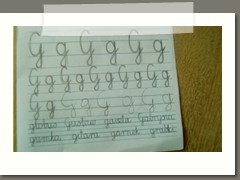 G g G g G g
G g G g G g G g G g
G g G g G g G g
globus Gustaw gazeta Grażyna
gumka gitara garnek gratki